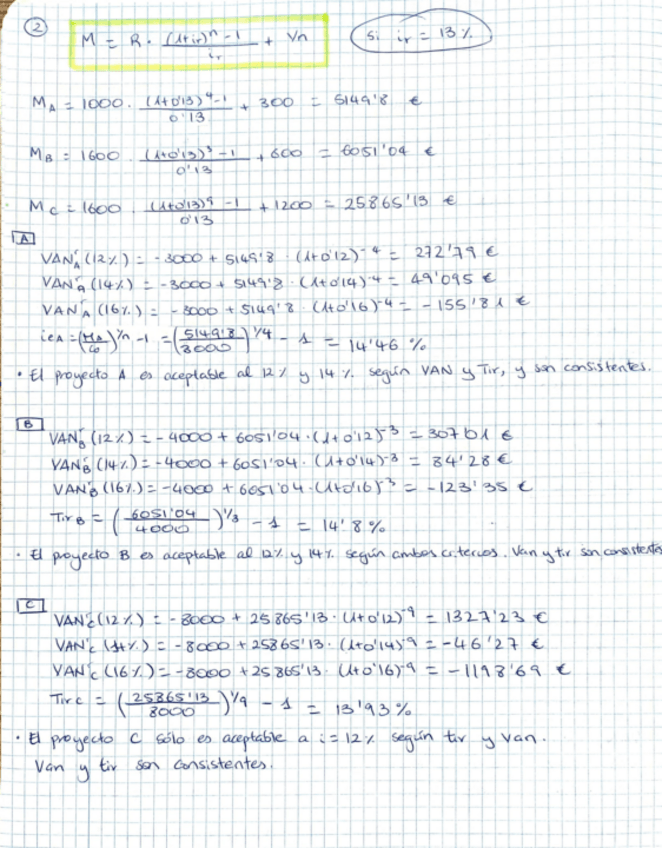 ②
M = R · (1+ir)^n - 1 / ir + Vn
Si ir = 13%
M_A = 1000 · (1+0'13)^4 - 1 / 0'13 + 300 = 5149'8 €
M_B = 1600 · (1+0'13)^3 - 1 / 0'13 + 600 = 6051'04 €
M_C = 1600 · (1+0'13)^9 - 1 / 0'13 + 1200 = 25865'13 €
A
VAN'_A (12%) = -3000 + 5149'8 · (1+0'12)^-4 = 272'79 €
VAN'_A (14%) = -3000 + 5149'8 · (1+0'14)^-4 = 49'095 €
VAN'_A (16%) = -3000 + 5149'8 · (1+0'16)^-4 = -155'81 €
ie_A = (M_A / C_0)^1/n - 1 = (5149'8 / 3000)^1/4 - 1 = 14'46 %
· El proyecto A es aceptable al 12% y 14%. según VAN y Tir, y son consistentes.
B
VAN'_B (12%) = -4000 + 6051'04 · (1+0'12)^-3 = 307'01 €
VAN'_B (14%) = -4000 + 6051'04 · (1+0'14)^-3 = 84'28 €
VAN'_B (16%) = -4000 + 6051'04 · (1+0'16)^-3 = -123'35 €
Tir_B = (6051'04 / 4000)^1/3 - 1 = 14'8 %
· El proyecto B es aceptable al 12% y 14%. según ambos criterios. Van y tir son consistentes
C
VAN'_C (12%) = -8000 + 25865'13 · (1+0'12)^-9 = 1327'23 €
VAN'_C (14%) = -8000 + 25865'13 · (1+0'14)^-9 = -46'27 €
VAN'_C (16%) = -8000 + 25865'13 · (1+0'16)^-9 = -1198'69 €
Tir_C = (25865'13 / 8000)^1/9 - 1 = 13'93 %
· El proyecto C sólo es aceptable a i = 12% según tir y van.
Van y tir son consistentes.